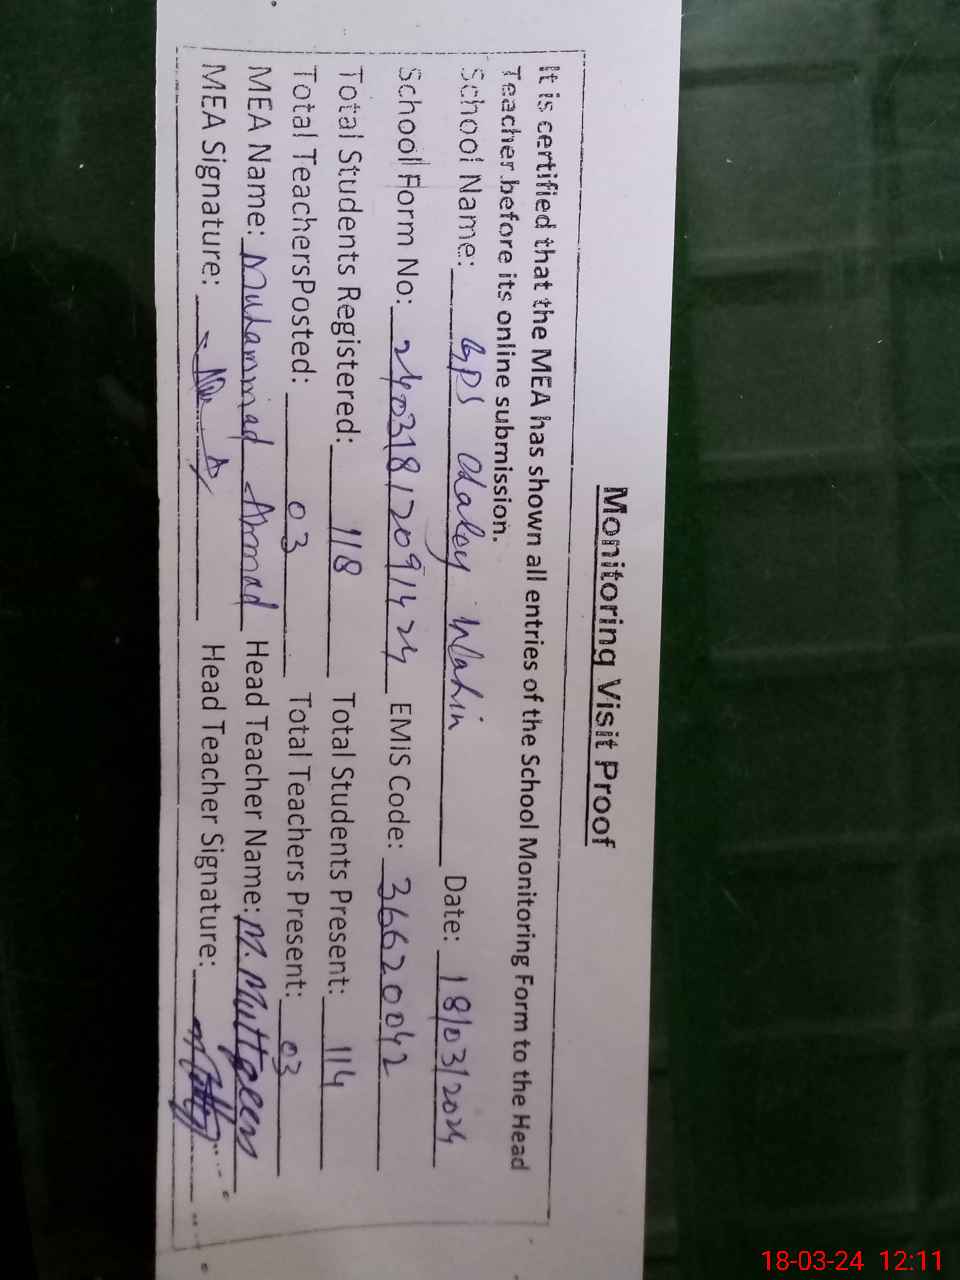 Monitoring Visit Proof
It is certified that the MEA has shown all entries of the School Monitoring Form to the Head
Teacher before its online submission.
School Name: GPS Wahin Date: 18/03/2024
School Form No: 240318120914 24 EMIS Code: 36620042
Total Students Registered: 118 Total Students Present: 114
Total TeachersPosted: 03 Total Teachers Present: 03
MEA Name: Muhammad Ahmad Head Teacher Name: M. Mutteen
MEA Signature: Head Teacher Signature:
18-03-24 12:11